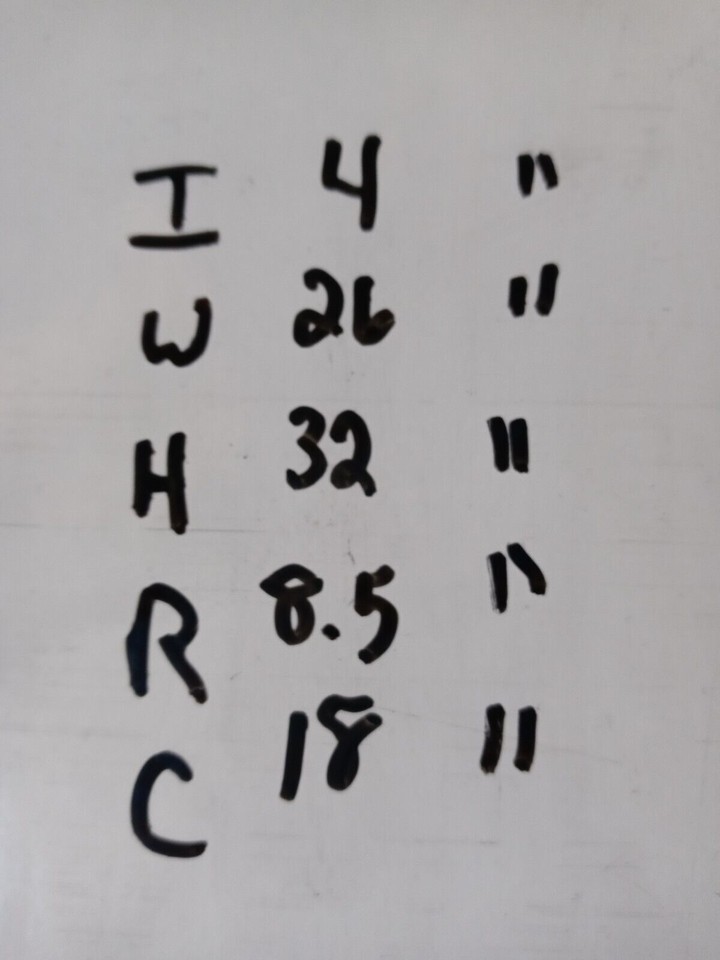 I 4 "
W 26 "
H 32 "
R 8.5 "
C 18 "